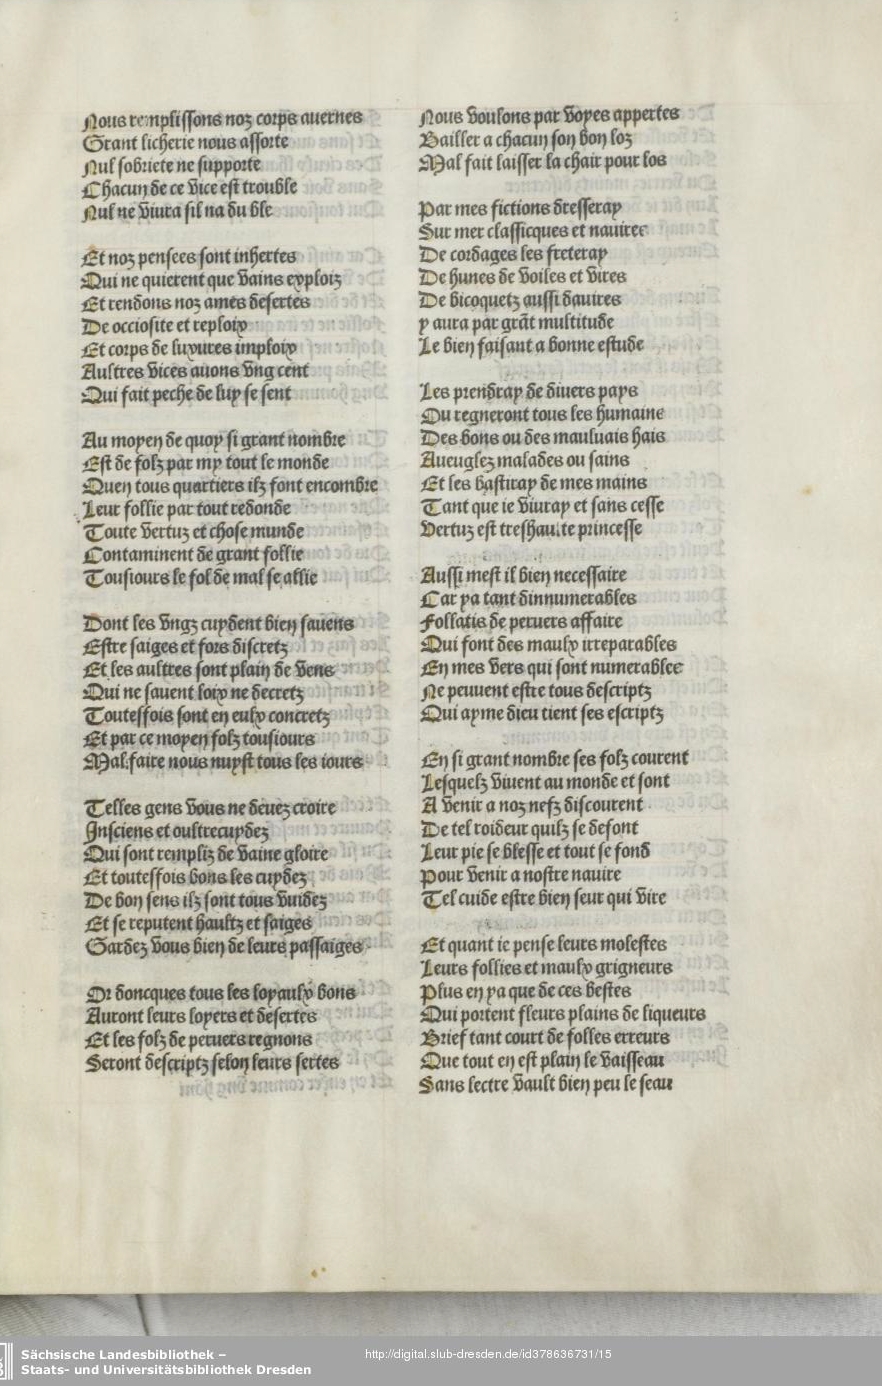 Nous remplissons noz corps auernes
Grant licherie nous assorte
Nul sobriete ne supporte
Chacun de ce vice est trouble
Nul ne viura sil na du ble
Et noz pensees sont inhertes
Qui ne quierent que vains exploiz
Et rendons noz ames desertes
De occiosite et reploix
Et corps de luxures imploix
Aultres vices auons vng cent
Qui fait peche de luy se sent
Au moyen de quoy si grant nombre
Est de folz par my tout le monde
Quen tous quartiers ilz font encombre
Leur follie par tout redonde
Toute vertuz et chose munde
Contaminent de grant follie
Tousiours le fol de mal se allie
Dont les vngz cuydent bien sauens
Estre saiges et fors discretz
Et les aultres sont plain de vens
Qui ne sauent loix ne decretz
Toutesfois sont en eulx concretz
Et par ce moyen folz tousiours
Mal faire nous nuyst tous les iours
Telles gens vous ne deuez croire
Insciens et oultrecuydez
Qui sont rempliz de vaine gloire
Et toutesfois bons les cuydez
De bon sens ilz sont tous vuidez
Et se reputent haultz et saiges
Gardez vous bien de leurs passaiges
Or doncques tous les loyaulx bons
Auront leurs loyers et desertes
Et les folz de peruers regnons
Seront descriptz selon leurs sertes
Nous voulons par voyes appertes
Bailler a chacun son bon loz
Mal fait laisser la chair pour los
Par mes fictions dresseray
Sur mer classicques et nauires
De cordages les freteray
De hunes de voiles et vires
De bicoquetz aussi dauires
y aura par grãt multitude
Le bien faisant a bonne estude
Les prendray de diuers pays
Ou regneront tous les humains
Des bons ou des mauluais hais
Aueuglez malades ou sains
Et les bastiray de mes mains
Tant que ie viuray et sans cesse
Vertuz est treshaulte princesse
Aussi mest il bien necessaire
Car ya tant dinnumerables
Follatis de peruers affaire
Qui font des maulx irreparables
En mes vers qui sont numerables
Ne peuuent estre tous descriptz
Qui ayme dieu tient ses escriptz
En si grant nombre ses folz courent
Lesquelz viuent au monde et sont
A venir a noz nefz discourent
De tel roideur quilz se defont
Leur pie se blesse et tout se fond
Pour venir a nostre nauire
Tel cuide estre bien seur qui vire
Et quant ie pense leurs molestes
Leurs follies et maulx grigneurs
Plus en ya que de ces bestes
Qui portent fleurs plains de liqueurs
Brief tant court de folles erreurs
Que tout en est plain le vaisseau
Sans lectre vault bien peu le seau
Sächsische Landesbibliothek –
Staats- und Universitätsbibliothek Dresden
http://digital.slub-dresden.de/id378636731/15